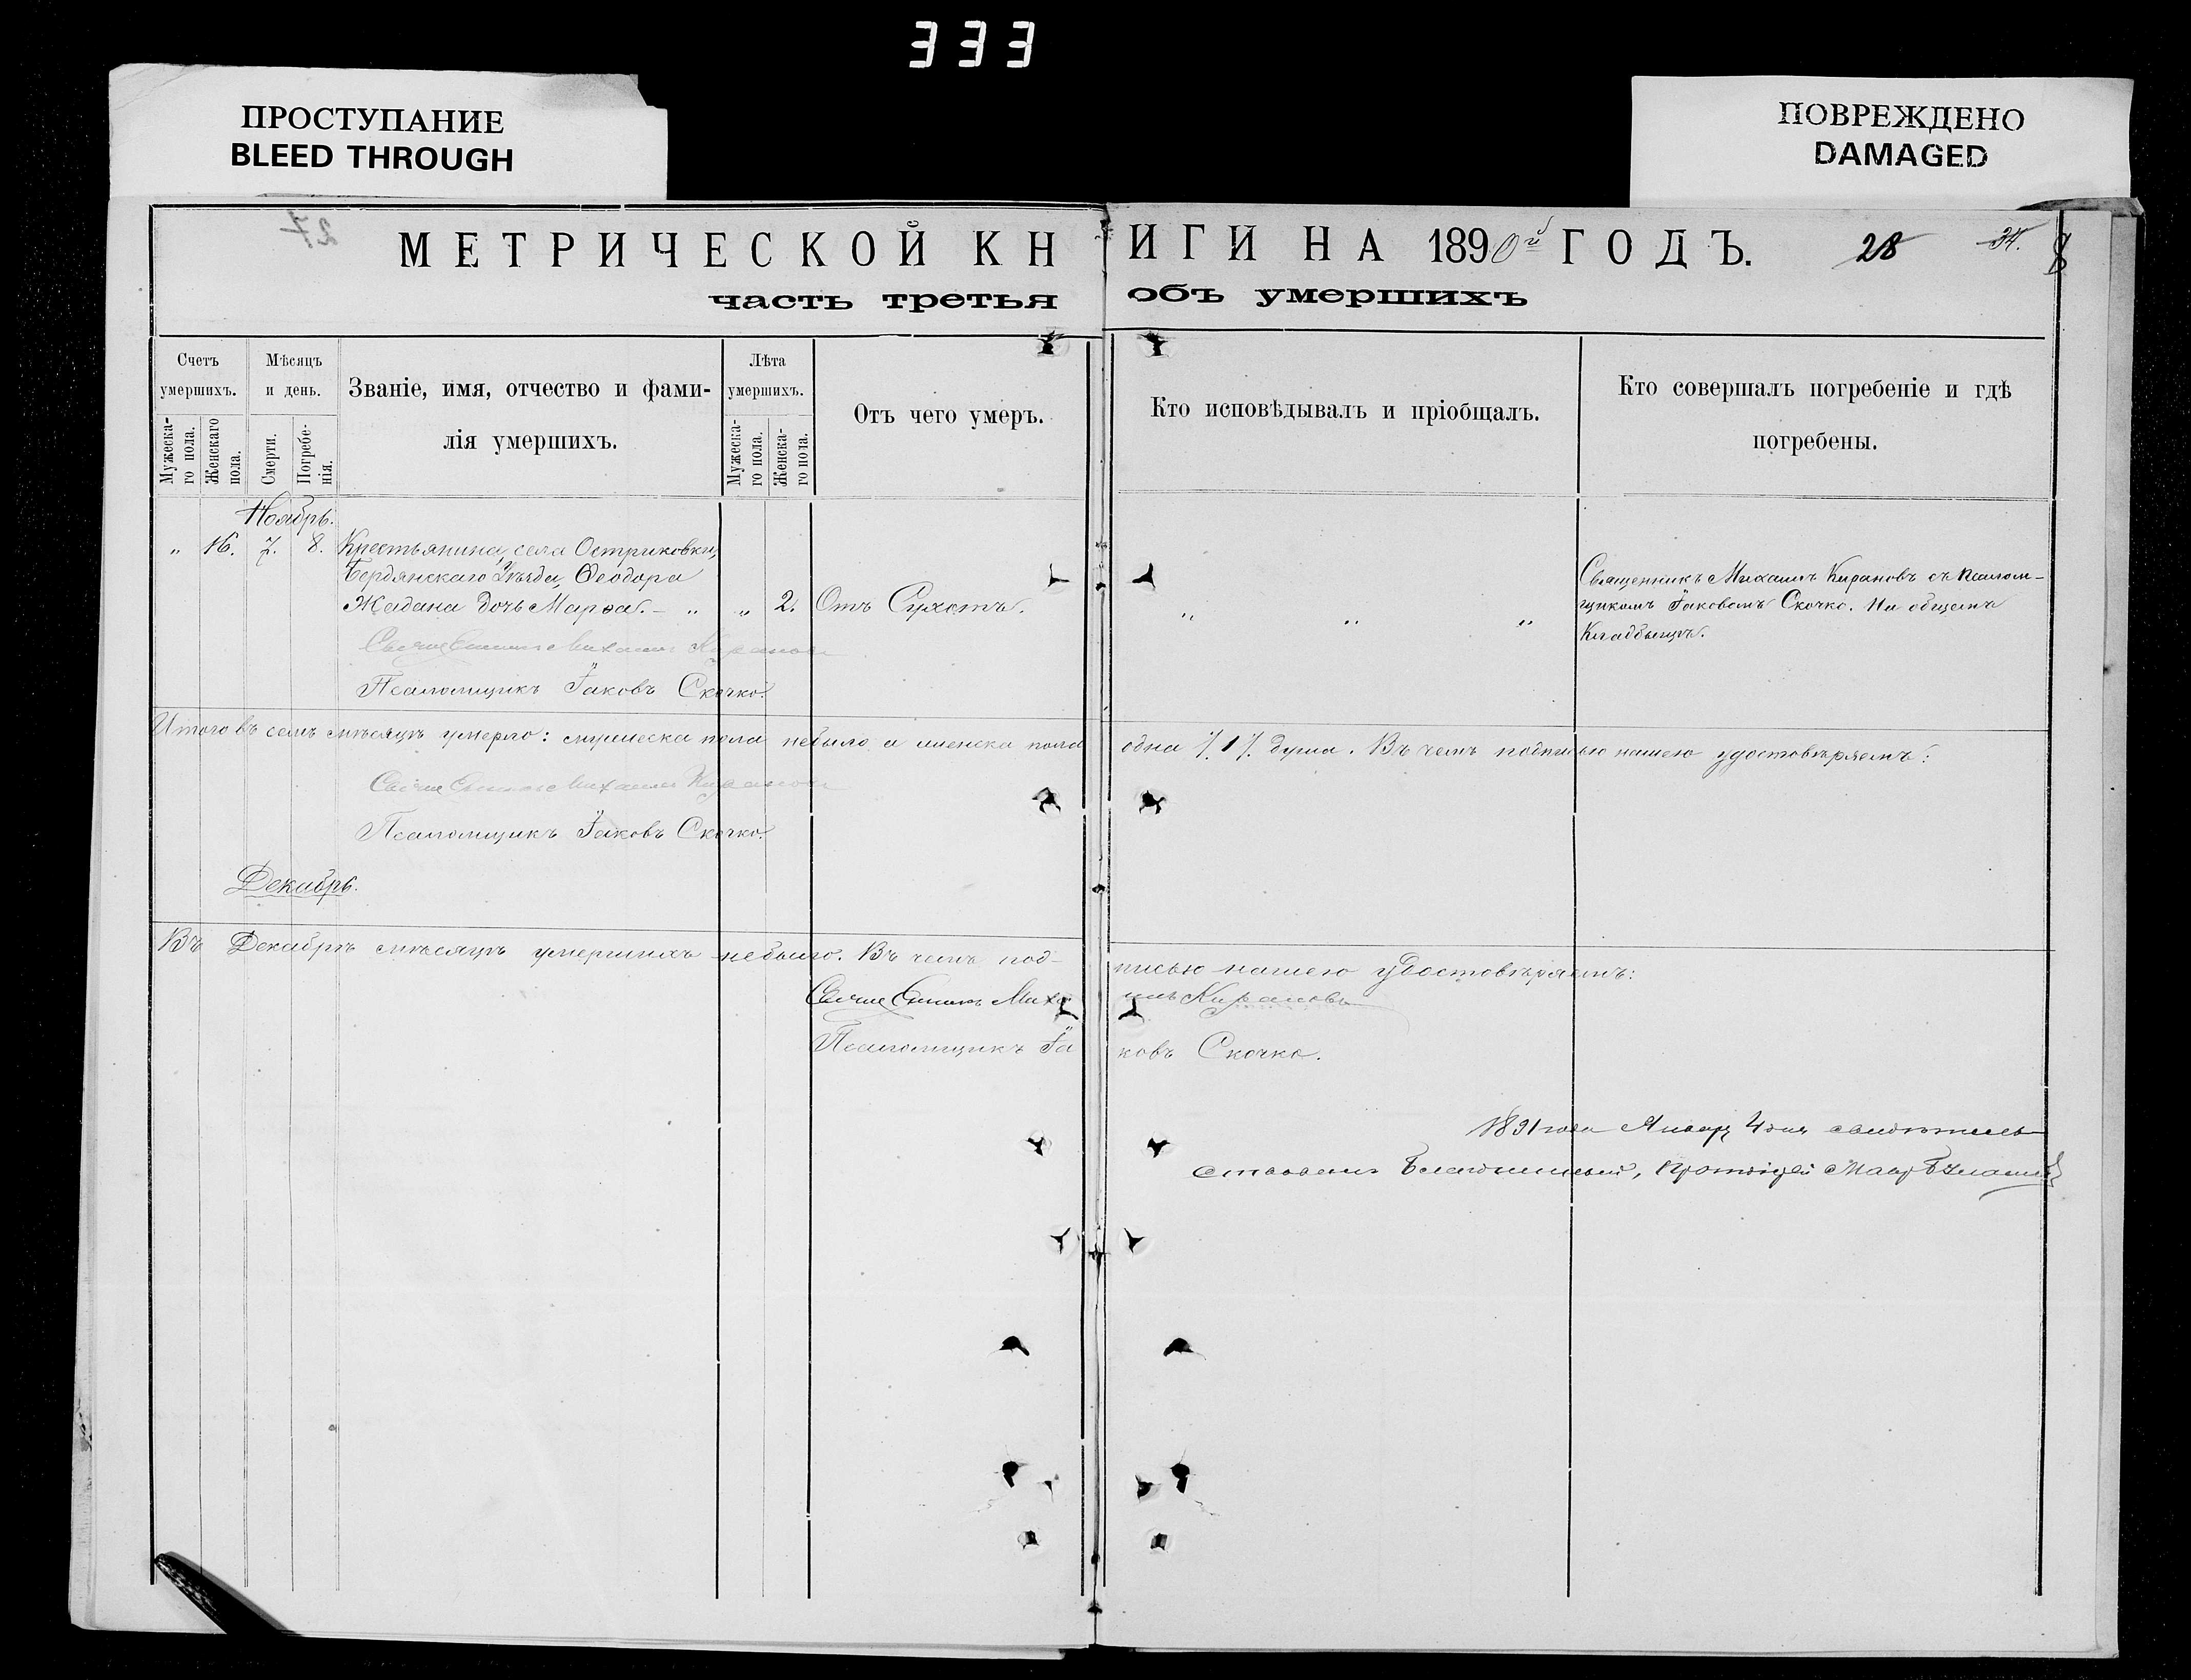 333
ПРОСТУПАНИЕ
BLEED THROUGH
ПОВРЕЖДЕНО
DAMAGED
27
МЕТРИЧЕСКОЙ КНИГИ НА 1890й ГОДЪ.
28
34.
часть третья объ умершихъ
Счетъ умершихъ.
Мужеска-го пола.
Женскаго пола.
Мѣсяцъ и день.
Смерти.
Погребе-нія.
Званіе, имя, отчество и фами-
лія умершихъ.
Лѣта умершихъ.
Мужеска-го пола.
Женска-го пола.
Отъ чего умеръ.
Кто исповѣдывалъ и пріобщалъ.
Кто совершалъ погребеніе и гдѣ
погребены.
Ноябрь.
„ 16. 7. 8. Крестьянина, села Остриковки,
Бердянскаго Уѣзда, Ѳеодора
Жадана дочь Марѳа. – „ „ 2. Отъ Сухотъ. „ „ „
Священникъ Михаилъ Кирановъ съ псалом-
щикомъ Іаковомъ Скочко. На общемъ
Кладбищѣ.
Священникъ Михаилъ Кирановъ
Псаломщикъ Іаковъ Скочко.
Итого въ семъ мѣсяцѣ умерло: мужеска пола небыло а женска пола одна /.1/. душа. Въ чемъ подписью нашею удостовѣряемъ:
Священникъ Михаилъ Кирановъ
Псаломщикъ Іаковъ Скочко.
Декабрь.
Въ Декабрѣ мѣсяцѣ умершихъ небыло. Въ чемъ под-писью нашею удостовѣряемъ:
Священникъ Михаилъ Кирановъ
Псаломщикъ Іаковъ Скочко.
1891 года Январ 4 дня свидѣтель
ствовалъ Благочинный, Протоіерей